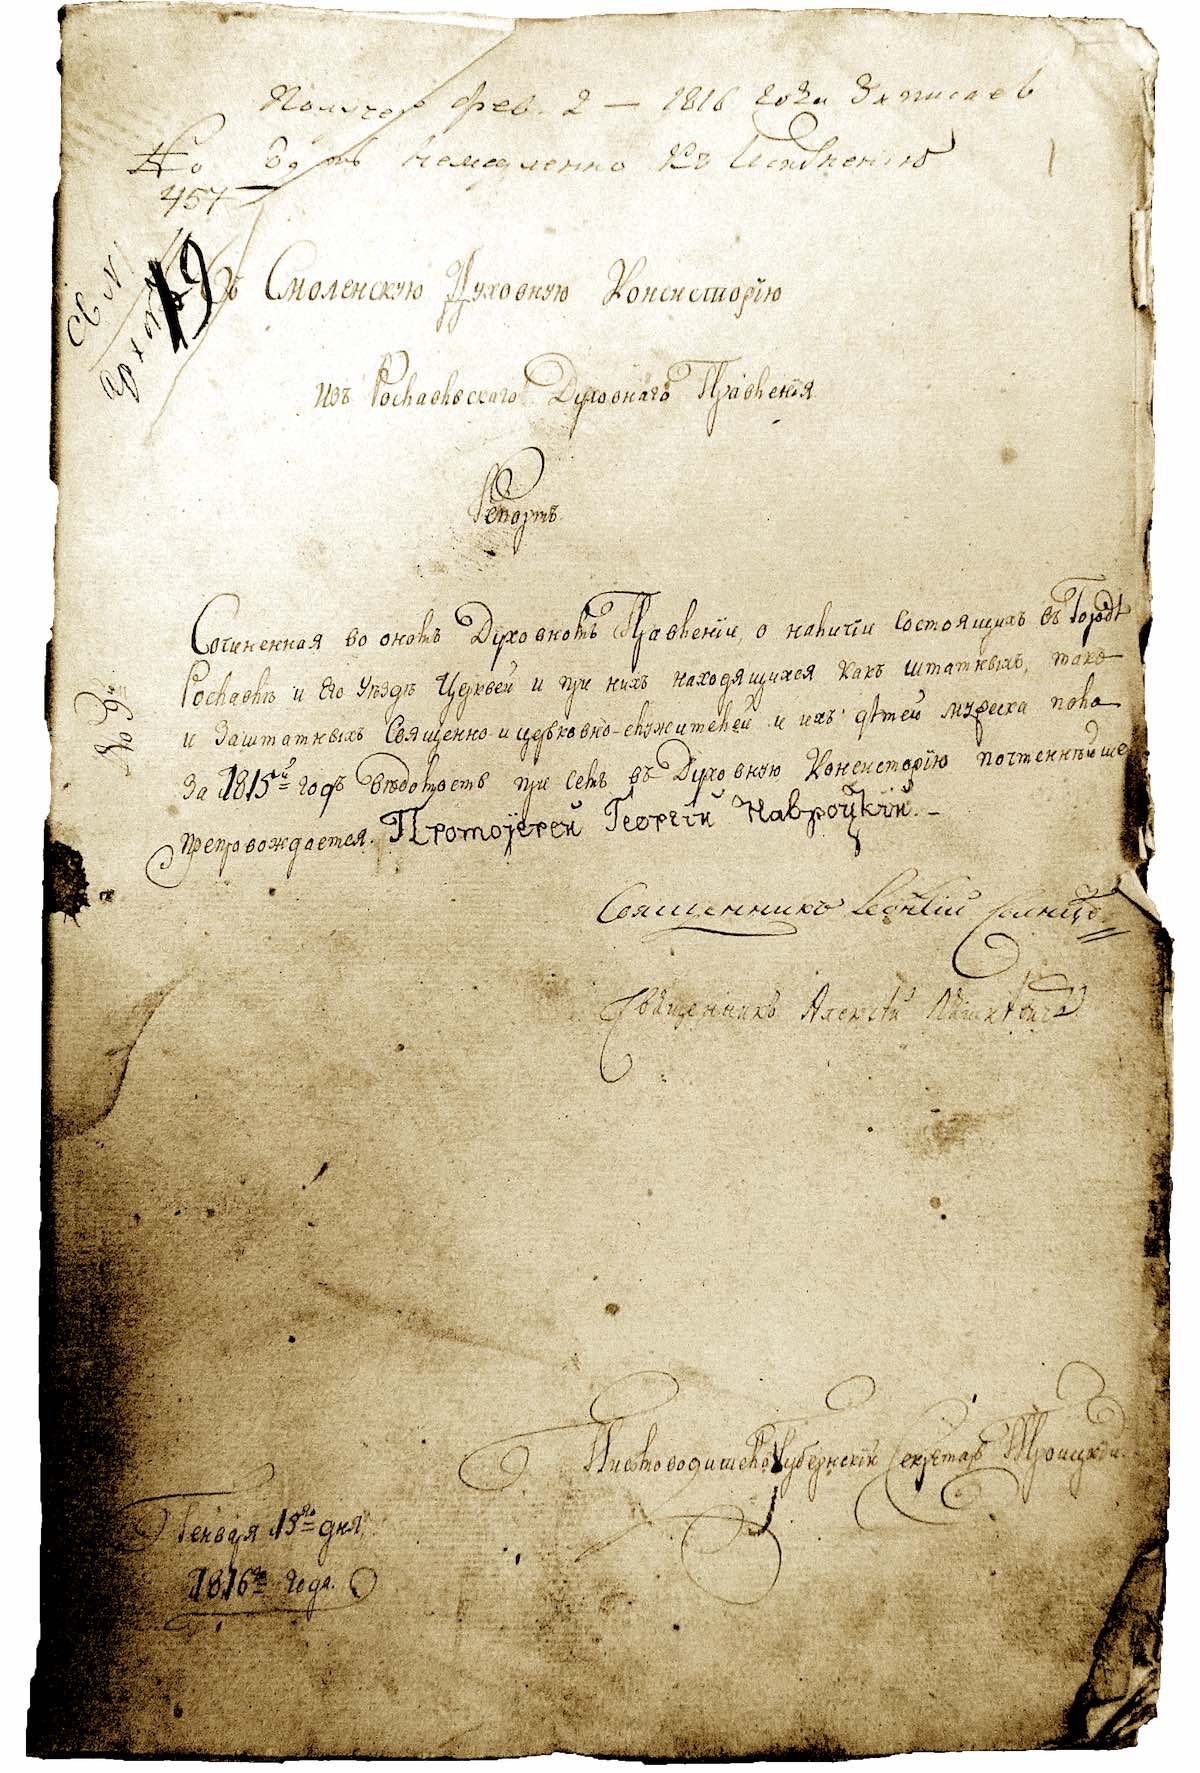 Получ. фев. 2 — 1816 года Записав
No отдать немедленно Къ Исполнению
457
19
Въ Смоленскую Духовную Консисторїю
Изъ Рославльскаго Духовнаго Правленїя
Репортъ.
Сочиненная во ономъ Духовномъ Правленїи, о наличїи состоящихъ въ Городѣ
Рославлѣ и его Уѣздѣ Церквей и при нихъ находящихся какъ штатныхъ, такъ
и заштатныхъ Священно-и церковно-служителей и ихъ дѣтей мужеска пола
За 1815й годъ вѣдомость при семъ въ Духовную Консисторїю почтеннѣйше
препровождается. Протоїерей Георгїй Навроцкїй. –
Священникъ Леонтїй Солнцо
Священникъ Алексѣй
Письмоводитель Губернскїй Секретарь Троицкїй.
Генваря 15го дня
1816го года.